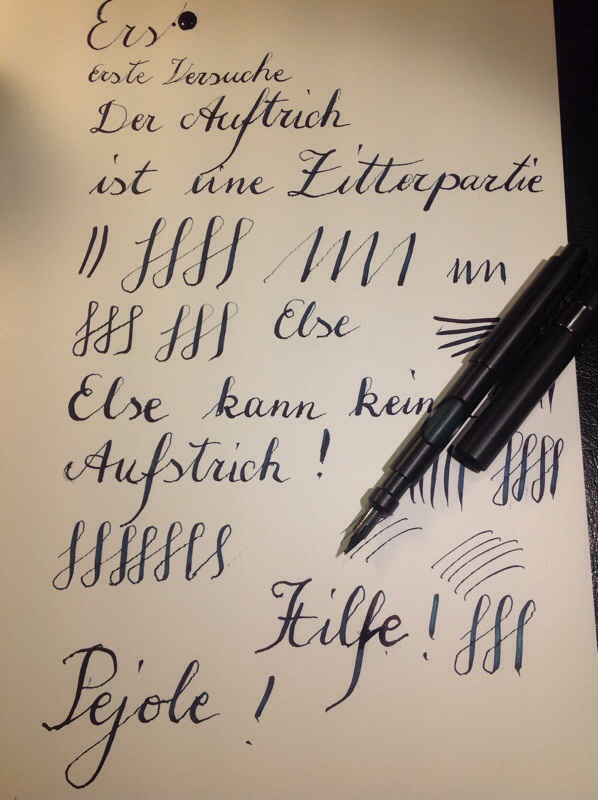 Ers
erste Versuche
Der Auftrich
ist eine Zitterpartie
un
Else
Else kann kein
Aufstrich !
Hilfe !
Pejole !